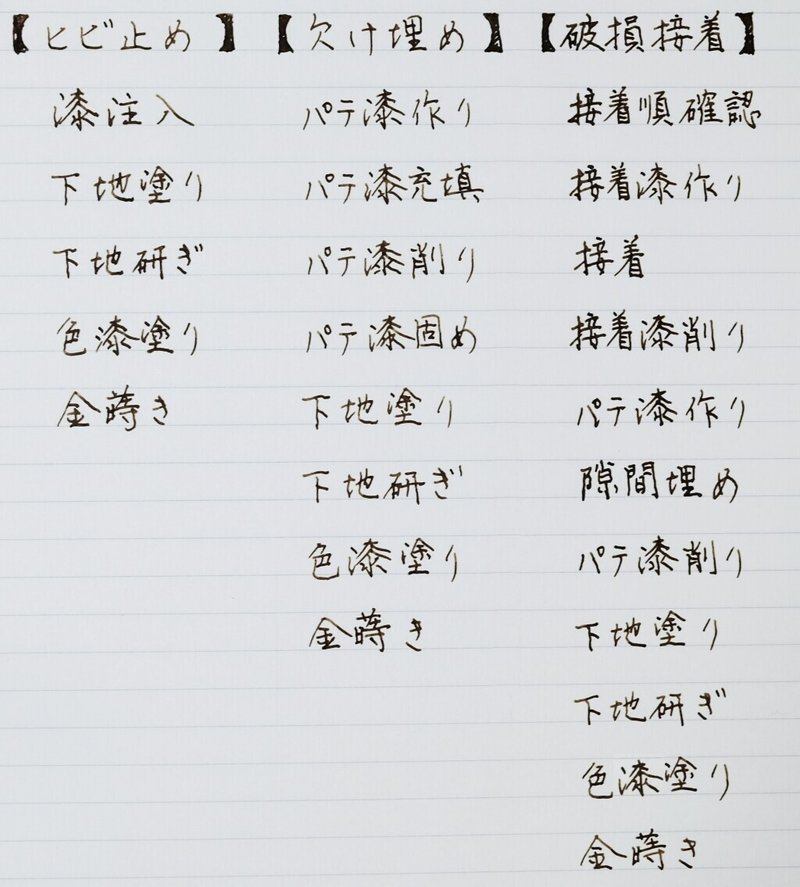 【ヒビ止め】
漆注入
下地塗り
下地研ぎ
色漆塗り
金蒔き
【欠け埋め】
パテ漆作り
パテ漆充填
パテ漆削り
パテ漆固め
下地塗り
下地研ぎ
色漆塗り
金蒔き
【破損接着】
接着順確認
接着漆作り
接着
接着漆削り
パテ漆作り
隙間埋め
パテ漆削り
下地塗り
下地研ぎ
色漆塗り
金蒔き